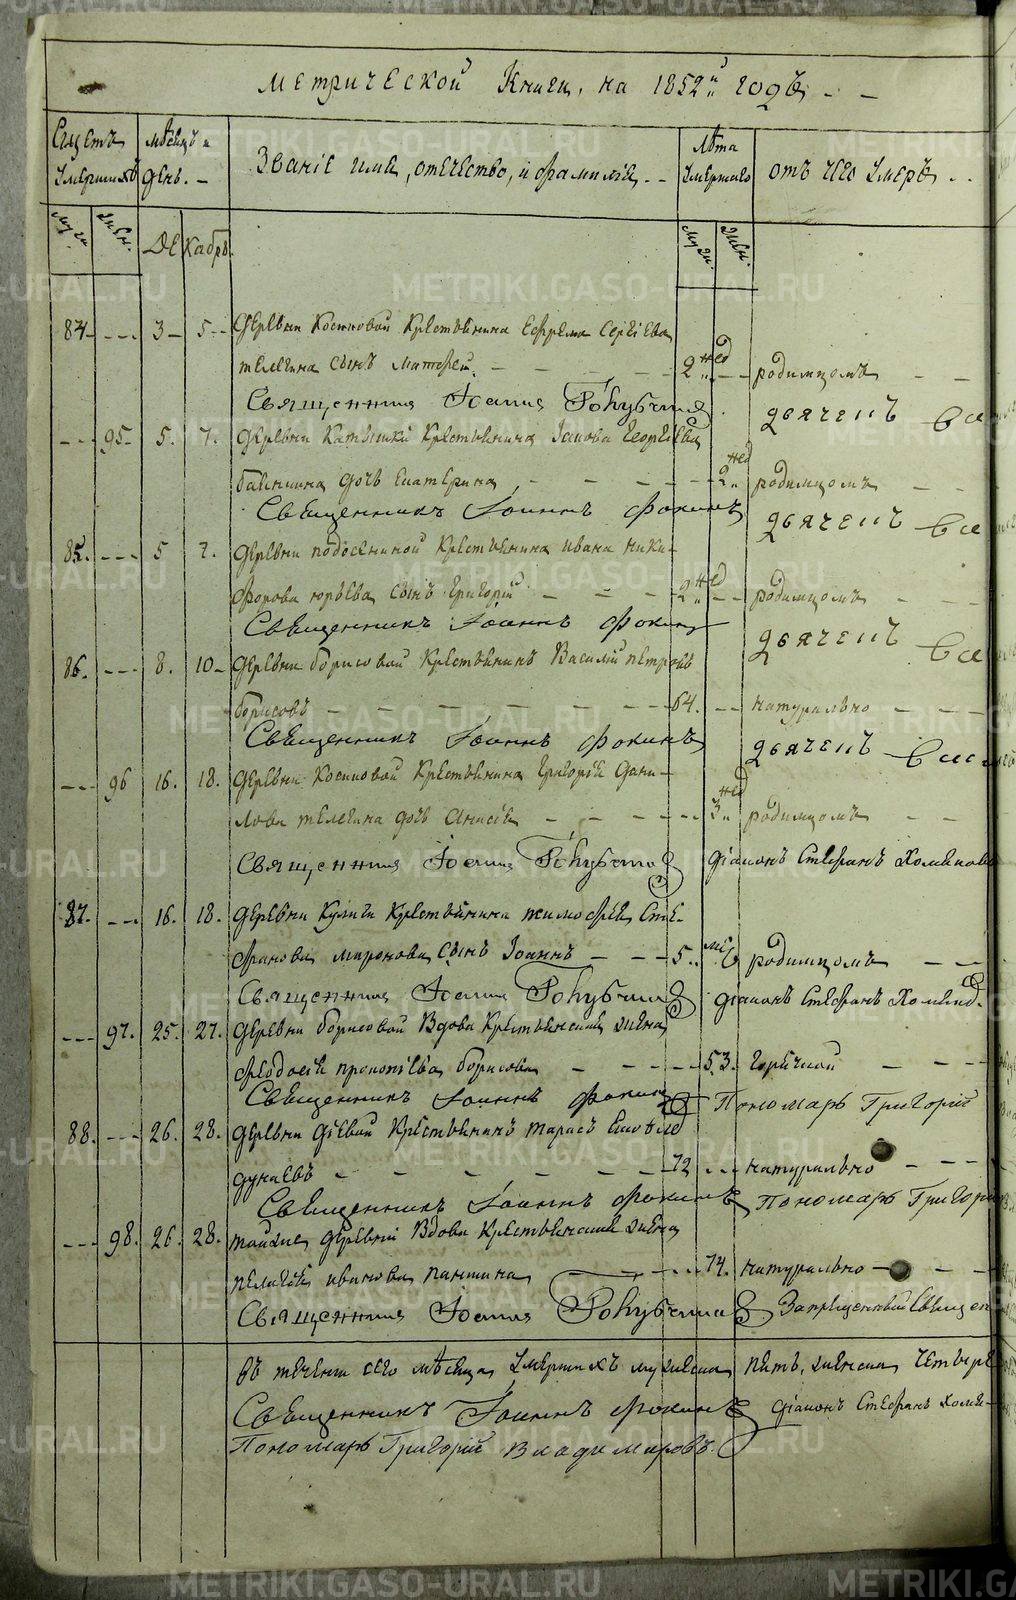 метрической Книги, на 1852й годъ
Счетъ умершихъ
мѣсяцъ и день.
Званіе имя, отечество, и фамилія.
Лѣта умершаго
отъ чего умеръ
муж. жен.
Декабрь.
муж. жен.
84 3 5 Деревни Косиковой Крестьянина Ефрема Сергіева
телегина сынъ Матфей. 2 нед родимцомъ
Священникъ Іоаннъ дьячекъ Вас
95. 5. 7. Деревни Крестьянина Іакова Георгіева
дочь Екатерина, 2 нед родимцомъ
Священникъ Іоаннъ Фокинъ дьячекъ Вас
85. 5 7. деревни подосениной Крестьянина Ивана Ники-
форова юрьева сынъ Григорій 2 нед родимцомъ
Священникъ Іоаннъ Фокинъ дьячекъ Вас
86. 8. 10 деревни борисовой Крестьянинъ Василій петровъ
борисовъ 64. натурально
Священникъ Іоаннъ Фокинъ дьячекъ Вас
96 16. 18. деревни Косиковой Крестьянина Григорія Дани-
лова телегина дочь Анисія 3 нед родимцомъ
Священникъ Іоаннъ діаконъ Стефанъ Хомяковъ
87. 16. 18. деревни Кулиги Крестьянина тимофея Сте-
фанова миронова сынъ Іоаннъ 5. мѣс родимцомъ
Священникъ Іоаннъ діаконъ Стефанъ
97. 25. 27. деревни борисовой Вдова Крестьянская жена
Феодосія прокопіева борисова 53. горячкой
Священникъ Іоаннъ Фокинъ Пономарь Григорій
88. 26. 28. деревни Крестьянинъ тарасъ
дунаевъ 72 натурально
Священникъ Іоаннъ Фокинъ Пономарь Григорій
98. 26. 28. тойже деревни Вдова Крестьянская жена
пелагія иванова паншина 74. натурально
Священникъ Іоаннъ Запрещенный Священ
въ теченіи сего мѣсяца Умершихъ мужеска пять, женска четыре
Священникъ Іоаннъ Фокинъ діаконъ Стефанъ Хомя-
Пономарь Григорій Владимировъ.
METRIKI.GASO-URAL.RU